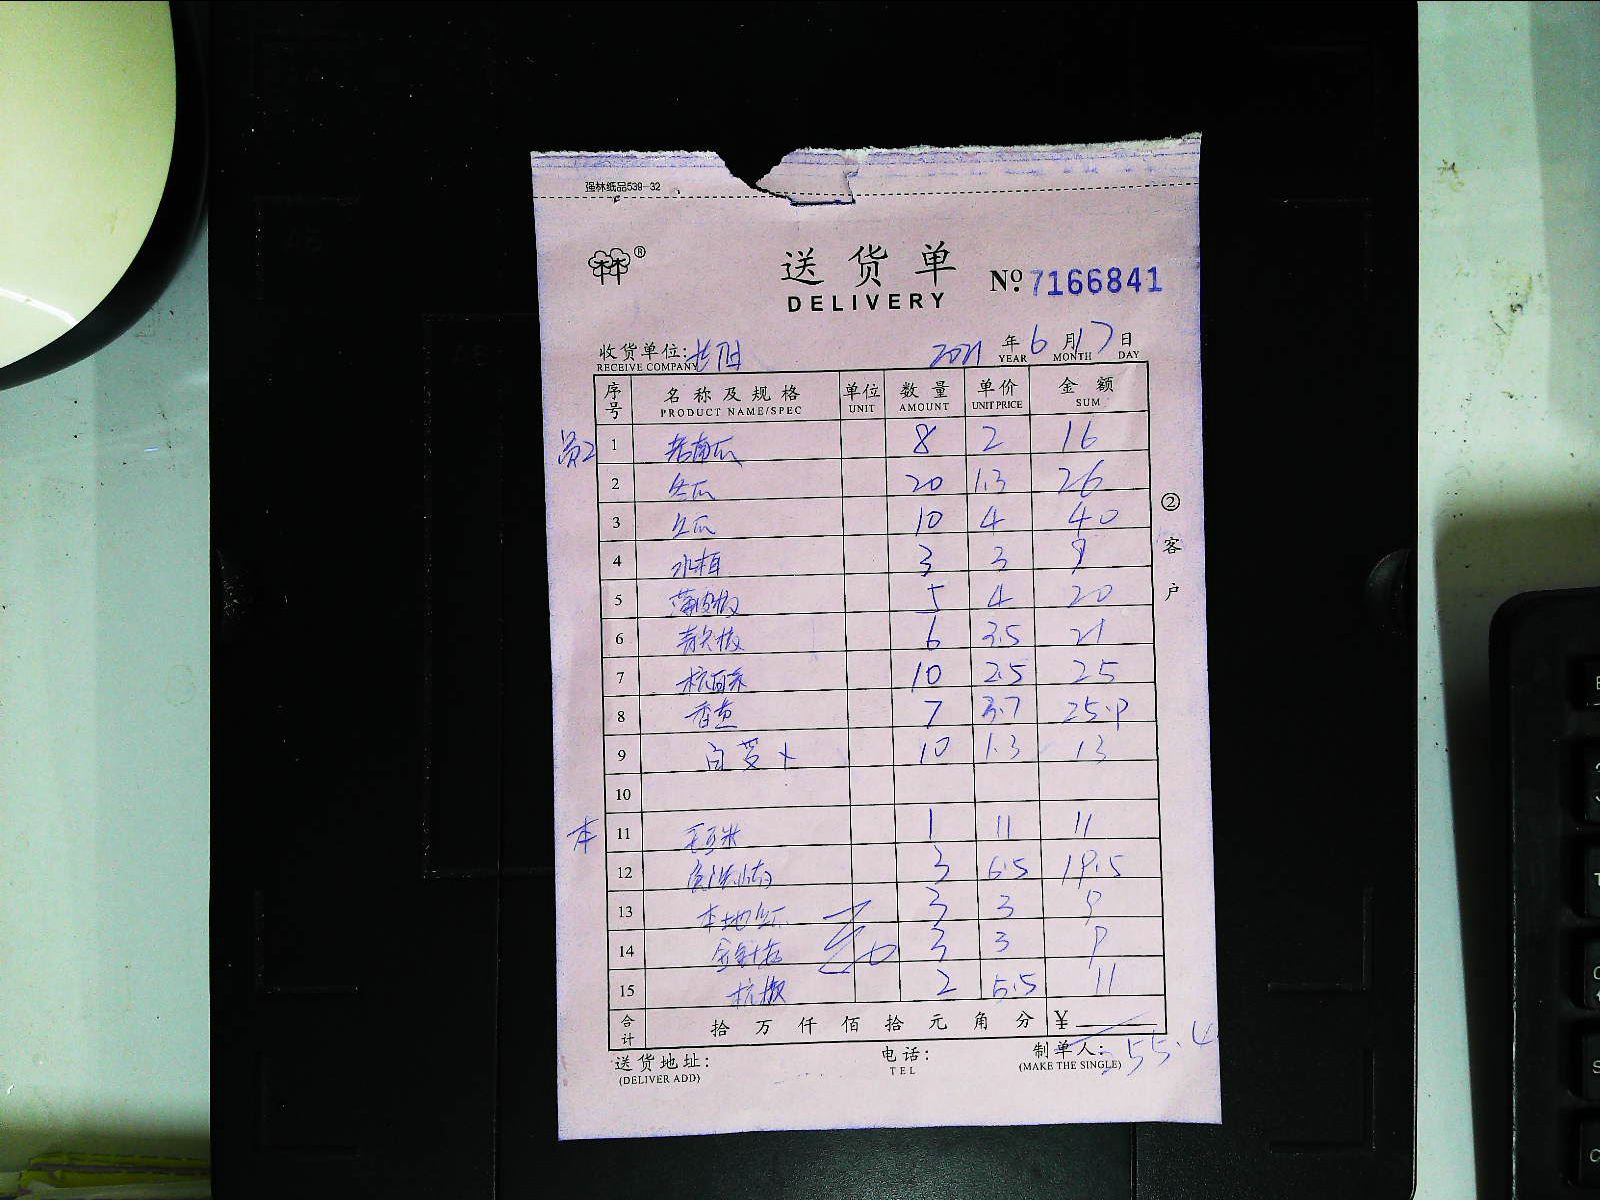 强林纸品539-32
林®
送货单
DELIVERY
№ 7166841
收货单位:
RECEIVE COMPANY
2021 年 6 月 17 日
YEAR MONTH DAY
序号 名称及规格 单位 数量 单价 金额
PRODUCT NAME/SPEC UNIT AMOUNT UNIT PRICE SUM
员2 1 老南瓜 8 2 16
2 冬瓜 20 1.3 26
3 10 4 40
4 3 3 9
5 薄皮椒 5 4 20
6 青尖椒 6 3.5 21
7 杭白菜 10 2.5 25
8 香 7 3.7 25.9
9 白萝卜 10 1.3 13
10
本 11 毛玉米 1 11 11
12 3 6.5 19.5
13 本地 3 3 9
14 金针菇 3 3 9
15 杭椒 2 5.5 11
合计 拾万仟佰拾元角分 ¥
255.4
送货地址: 电话: 制单人:
(DELIVER ADD) TEL (MAKE THE SINGLE)
② 客户